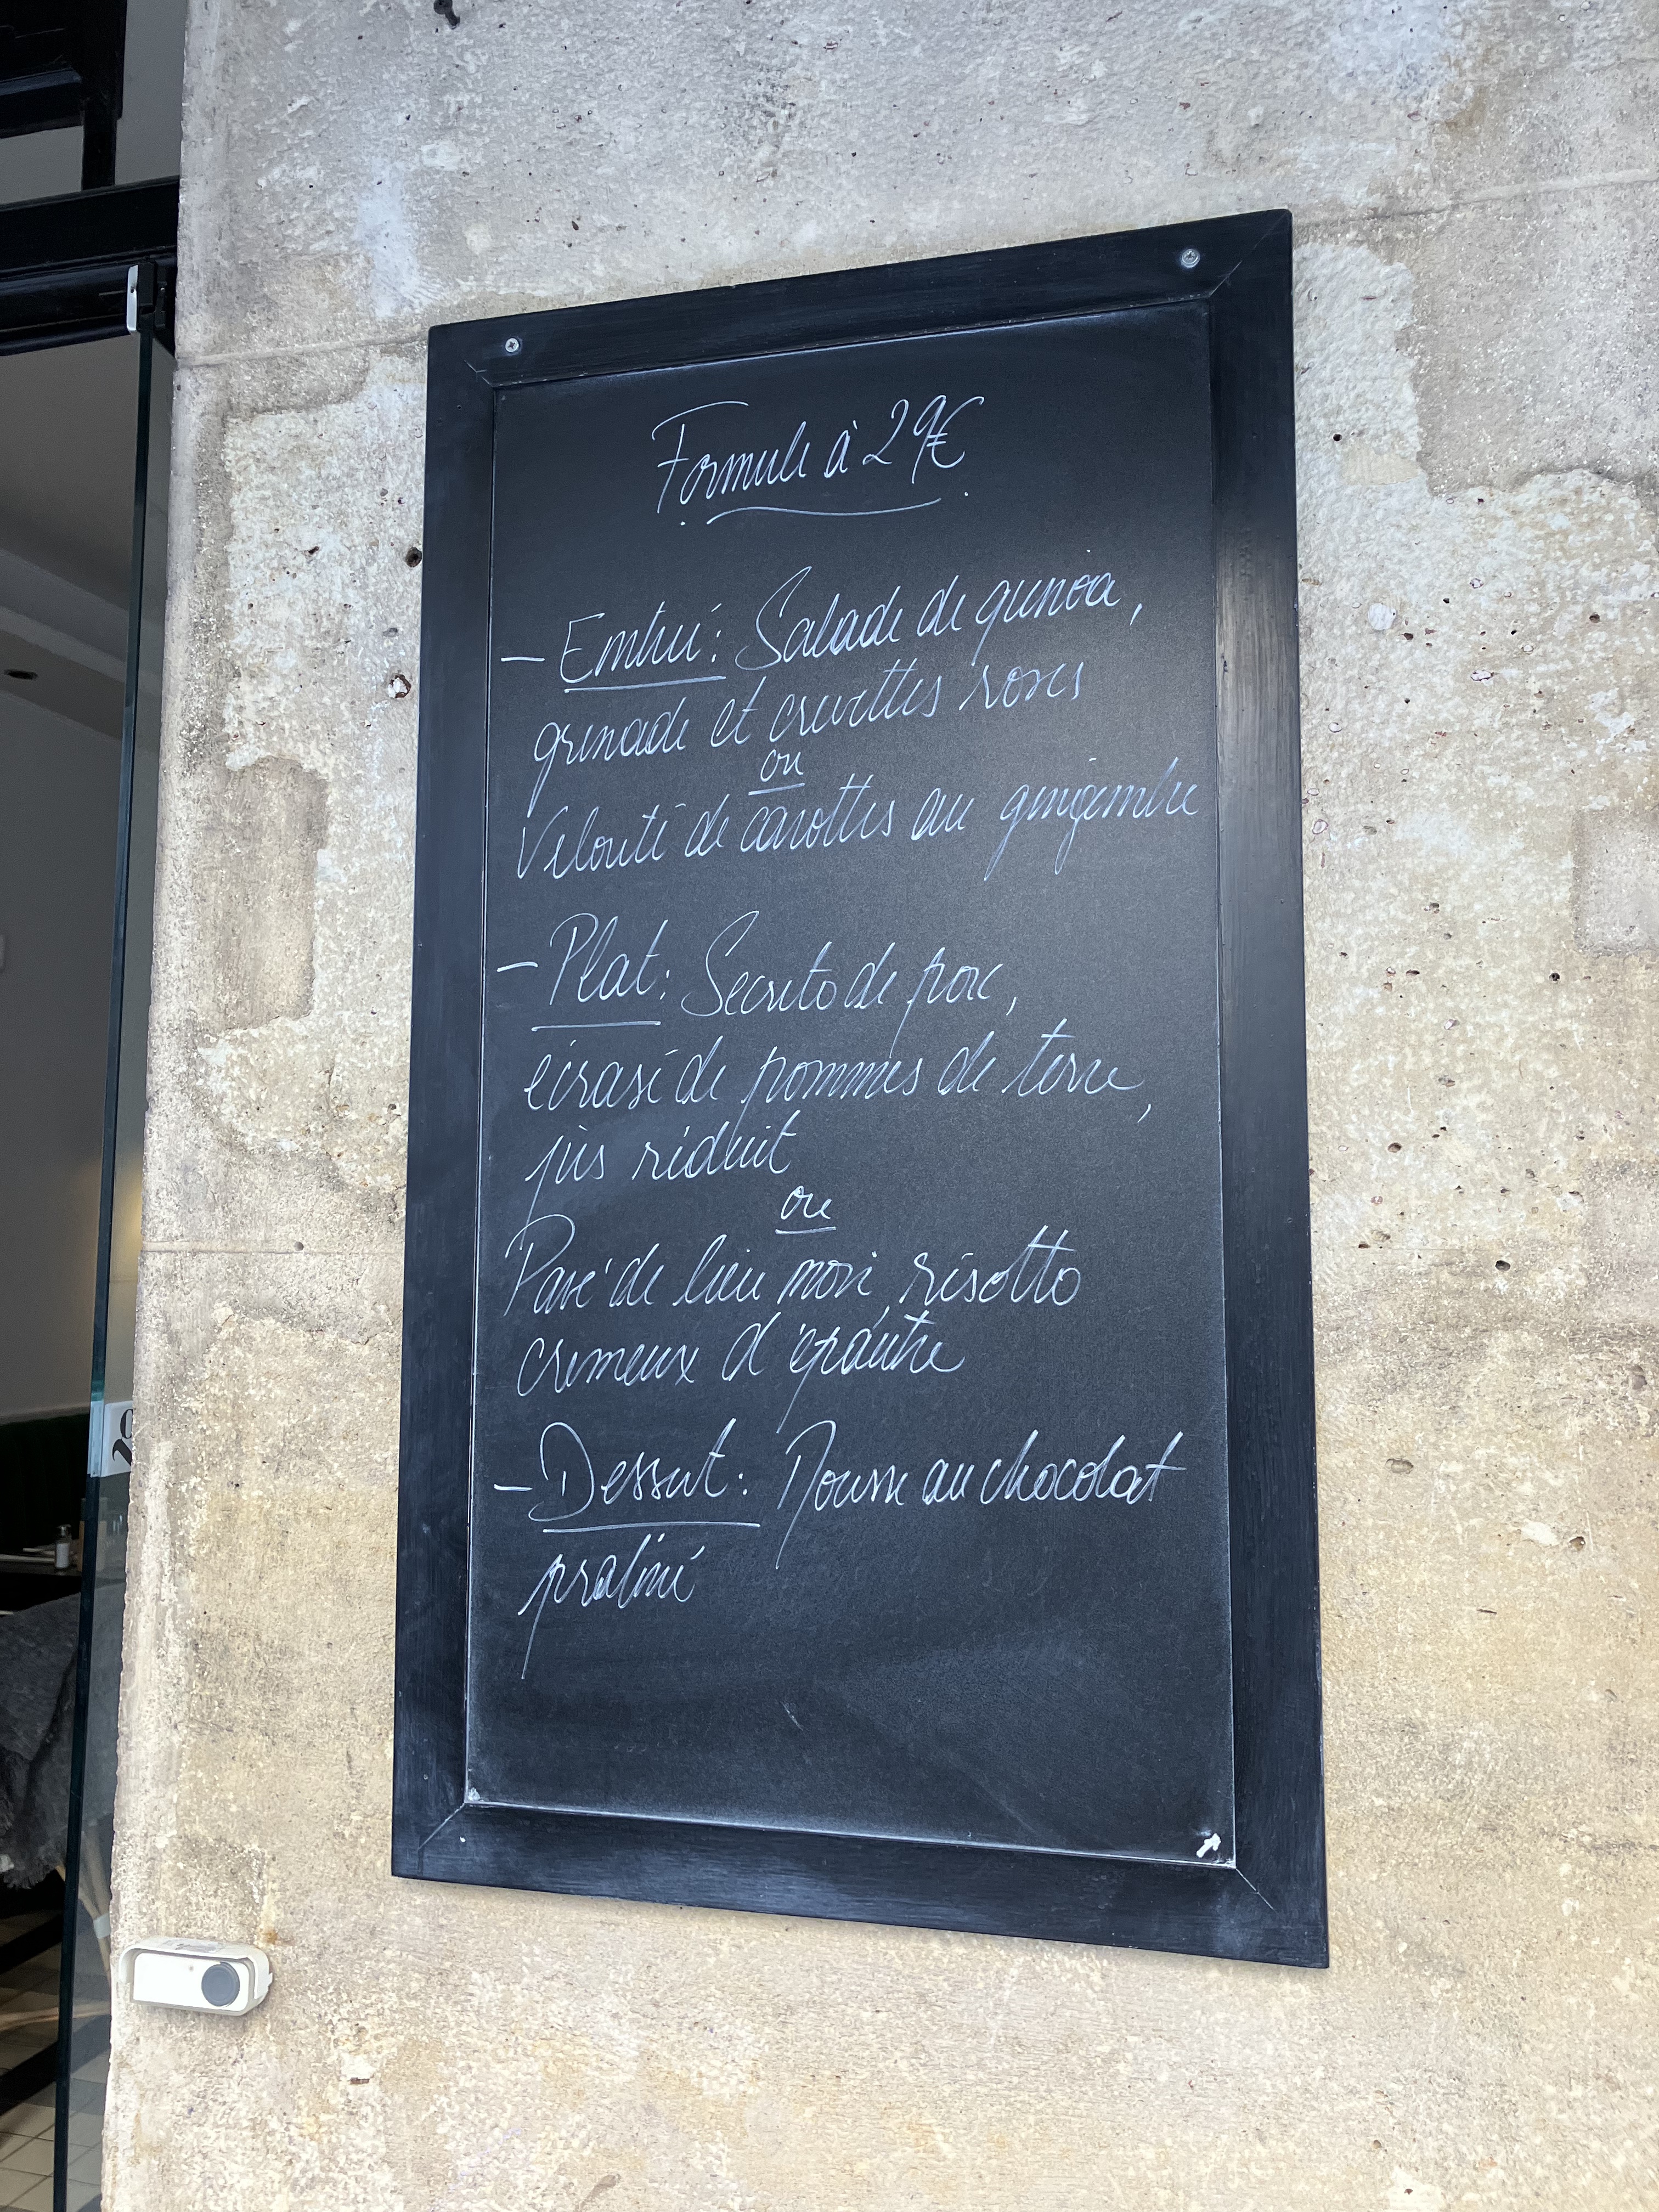 Formule à 29€
- Entrée : Salade de quinoa,
grenade et crevettes roses
ou
Velouté de carottes au gingembre
- Plat : Secreto de porc,
écrasé de pommes de terre,
jus réduit
ou
Pavé de lieu noir, risotto
crémeux d'épeautre
- Dessert : Mousse au chocolat
praliné